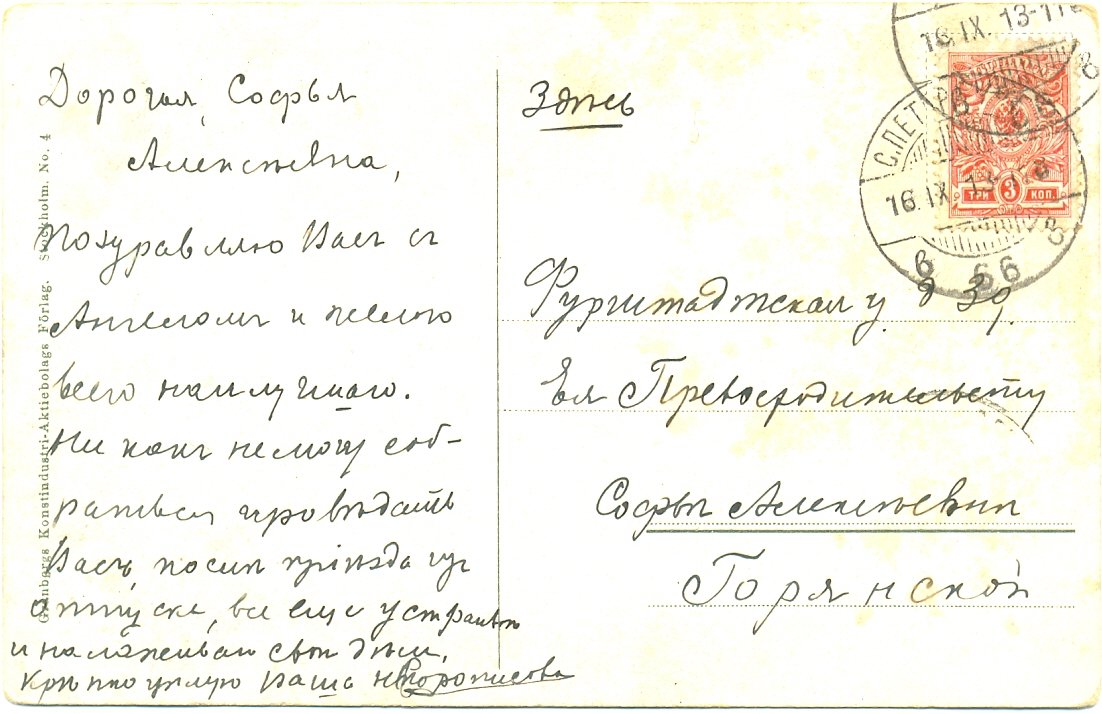 Дорогая Софья
Алексѣевна,
поздравляю Васъ съ
Ангеломъ и желаю
всего наилучшаго.
Ни какъ не могу соб-
раться провѣдать
Васъ, послѣ пріѣзда изъ
отпуска, все еще устраиваю
и налаживаю свои дѣла,
Крѣпко цѣлую Ваша
Здѣсь
Фурштадтская у. д 39,
Ея Превосходительству
Софьѣ Алексѣевнѣ
Горянской
Granbergs Konstindustri-Aktiebolags Förlag. Stockholm. No. 4
16.IX.13-11
С.ПЕТЕРБУРГЪ
16.IX.13
6 66
ТРИ 3 КОП.